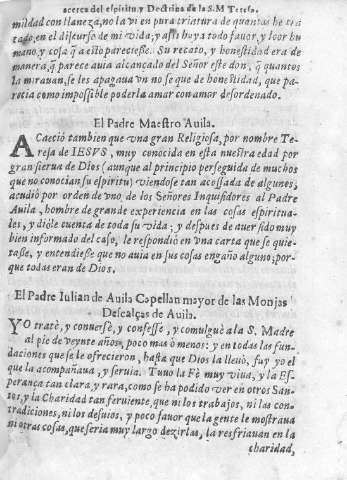 acerca del espiritu y Doctrina de la S. M Teresa.
mildad con llaneza, no la vi en pura criatura de quantas he tra
tado, en el discurso de mi vida, y assi huyа todo fauor, y loor hu
mano, y cosa q̃ a esto pareciesse. Su recato, y honestidad era de
manera, q̃ parece auia alcançado del Señor este don, q̃ quantos
la mirauan, se les apagaua vn no se que de honestidad, que pa-
recia como impossible poderla amar con amor desordenado.
El Padre Maestro Auila.
ACaeciò tambien que vna gran Religiosa, por nombre Te-
resa de IESVS, muy conocida en esta nuestra edad por
gran sierua de Dios (aunque al principio perseguida de muchos
que no conocian su espiritu) viendose tan acossada de algunos,
acudiò por orden de vno de los Señores Inquisidores al Padre
Auila, hombre de grande experiencia en las cosas espiritua-
les, y diòle cuenta de toda su vida; y despues de auer sido muy
bien informado del caso, le respondiò en vna carta que se quie-
tasse, y entendiesse que no auia en sus cosas engaño alguno; por
que todas eran de Dios.
El Padre Iulian de Auila Capellan mayor de las Monjas
Descalças de Auila.
YO tratè, y conuersè, y confessè, y comulguè a la S. Madre
al pie de veynte años, poco mas ò menos: y en todas las fun-
daciones que se le ofrecieron, hasta que Dios la lleuò, fuy yo el
que la acompañaua, y seruia. Tuuo la Fè muy viua, y la Es-
perança tan clara, y rara, como se ha podido ver en otros San-
tos, y la Charidad tan feruiente, que ni los trabajos, ni las con-
tradiciones, ni los desuios, y poco fauor que la gente le mostraua
ni otras cosas, que seria muy largo dezirlas, la resfriauan en la
charidad,